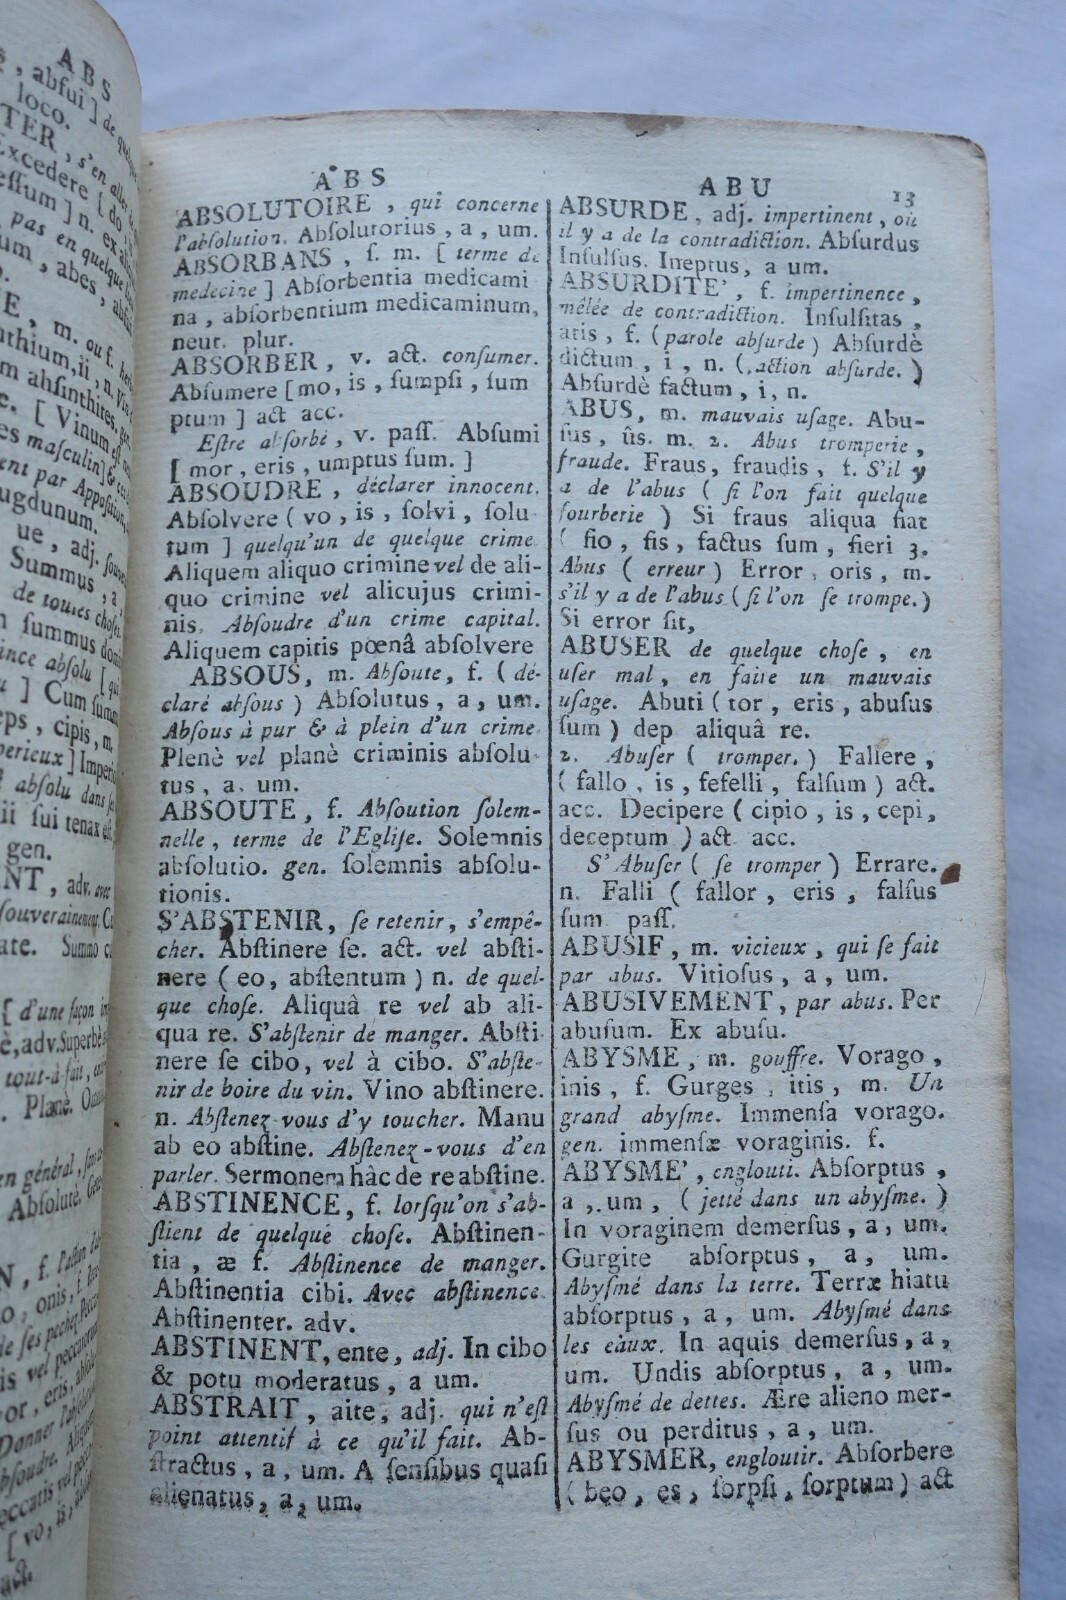 ABS
ABSOLUTOIRE , qui concerne
l'abſolution. Abſolutorius, a, um.
ABSORBANS , ſ. m. [ terme de
medecine ] Abſorbentia medicami
na , abſorbentium medicaminum,
neut. plur.
ABSORBER , v. act. conſumer.
Abſumere [mo, is , ſumpſi , ſum
ptum ] act acc.
Eſtre abſorbé , v. paſſ. Abſumi
[ mor , eris , umptus ſum. ]
ABSOUDRE , déclarer innocent.
Abſolvere ( vo , is , ſolvi , ſolu
tum ] quelqu'un de quelque crime
Aliquem aliquo crimine vel de ali-
quo crimine vel alicujus crimi-
nis. Abſoudre d'un crime capital.
Aliquem capitis pœnâ abſolvere
ABSOUS, m. Abſoute, f. ( dé-
claré abſous ) Abſolutus, a, um.
Abſous à pur & à plein d'un crime
Plenè vel planè criminis abſolu-
tus, a, um.
ABSOUTE, f. Abſoution ſolem-
nelle , terme de l'Egliſe. Solemnis
abſolutio. gen. ſolemnis abſolu-
tionis.
S'ABSTENIR, ſe retenir, s'empê-
cher. Abſtinere ſe. act. vel abſti-
nere ( eo, abſtentum ) n. de quel-
que choſe. Aliquâ re vel ab ali-
qua re. S'abſtenir de manger. Abſti
nere ſe cibo, vel à cibo. S'abſte-
nir de boire du vin. Vino abſtinere.
n. Abſtenez-vous d'y toucher. Manu
ab eo abſtine. Abſtenez-vous d'en
parler. Sermonem hâc de re abſtine.
ABSTINENCE, f. lorſqu'on s'ab-
ſtient de quelque choſe. Abſtinen-
tia , æ f. Abſtinence de manger.
Abſtinentia cibi. Avec abſtinence.
Abſtinenter. adv.
ABSTINENT, ente, adj. In cibo
& potu moderatus, a um.
ABSTRAIT , aite, adj. qui n'eſt
point attentif à ce qu'il fait. Ab-
ſtractus, a, um. A ſenſibus quaſi
alienatus, a, um.
ABU 13
ABSURDE, adj. impertinent, où
il y a de la contradiction. Abſurdus
Inſulſus. Ineptus, a um.
ABSURDITE', f. impertinence ,
mêlée de contradiction. Inſulſitas ,
atis , f. ( parole abſurde ) Abſurdè
dictum , i , n. ( action abſurde. )
Abſurdè factum, i, n.
ABUS, m. mauvais uſage. Abu-
ſus, ûs. m. 2. Abus tromperie,
fraude. Fraus, fraudis , f. S'il y
a de l'abus ( ſi l'on fait quelque
fourberie ) Si fraus aliqua fiat
( fio , fis , factus ſum , fieri 3.
Abus ( erreur ) Error, oris, m.
s'il y a de l'abus (ſi l'on ſe trompe.)
Si error ſit,
ABUSER de quelque choſe , en
uſer mal, en faire un mauvais
uſage. Abuti ( tor , eris , abuſus
ſum ) dep aliquâ re.
2. Abuſer ( tromper. ) Fallere,
( fallo , is , fefelli , falſum ) act.
acc. Decipere ( cipio , is , cepi,
deceptum ) act acc.
S' Abuſer ( ſe tromper ) Errare.
n. Falli ( fallor , eris , falſus
ſum paſſ.
ABUSIF, m. vicieux , qui ſe fait
par abus. Vitioſus, a, um.
ABUSIVEMENT, par abus. Per
abuſum. Ex abuſu.
ABYSME , m. gouffre. Vorago ,
inis , f. Gurges , itis , m. Un
grand abyſme. Immenſa vorago.
gen. immenſæ voraginis. f.
ABYSME', englouti. Abſorptus ,
a , um , ( jetté dans un abyſme. )
In voraginem demerſus, a, um.
Gurgite abſorptus , a , um.
Abyſmé dans la terre. Terræ hiatu
abſorptus , a , um. Abyſmé dans
les eaux. In aquis demerſus, a,
um. Undis abſorptus , a , um.
Abyſmé de dettes. Ære alieno mer-
ſus ou perditus , a , um.
ABYSMER, engloutir. Abſorbere
( beo , es , ſorpſi , ſorptum ) act